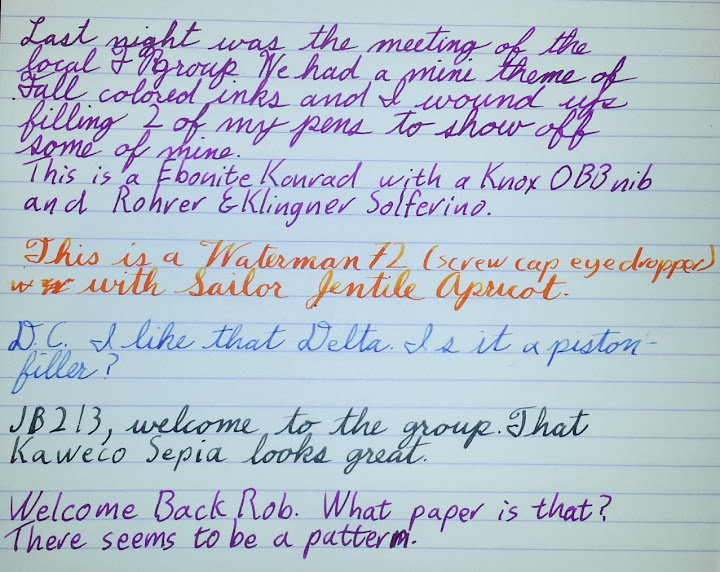 Last night was the meeting of the
local FP group. We had a mini theme of
Fall colored inks and I wound up
filling 2 of my pens to show off
some of mine.
This is a Ebonite Konrad with a Knox OBB nib
and Rohrer & Klingner Solferino.
This is a Waterman 72 (screw cap eyedropper)
with Sailor Jentile Apricot.
D.C. I like that Delta. Is it a piston-
filler?
JB213, welcome to the group. That
Kaweco Sepia looks great.
Welcome Back Rob. What paper is that?
There seems to be a pattern.